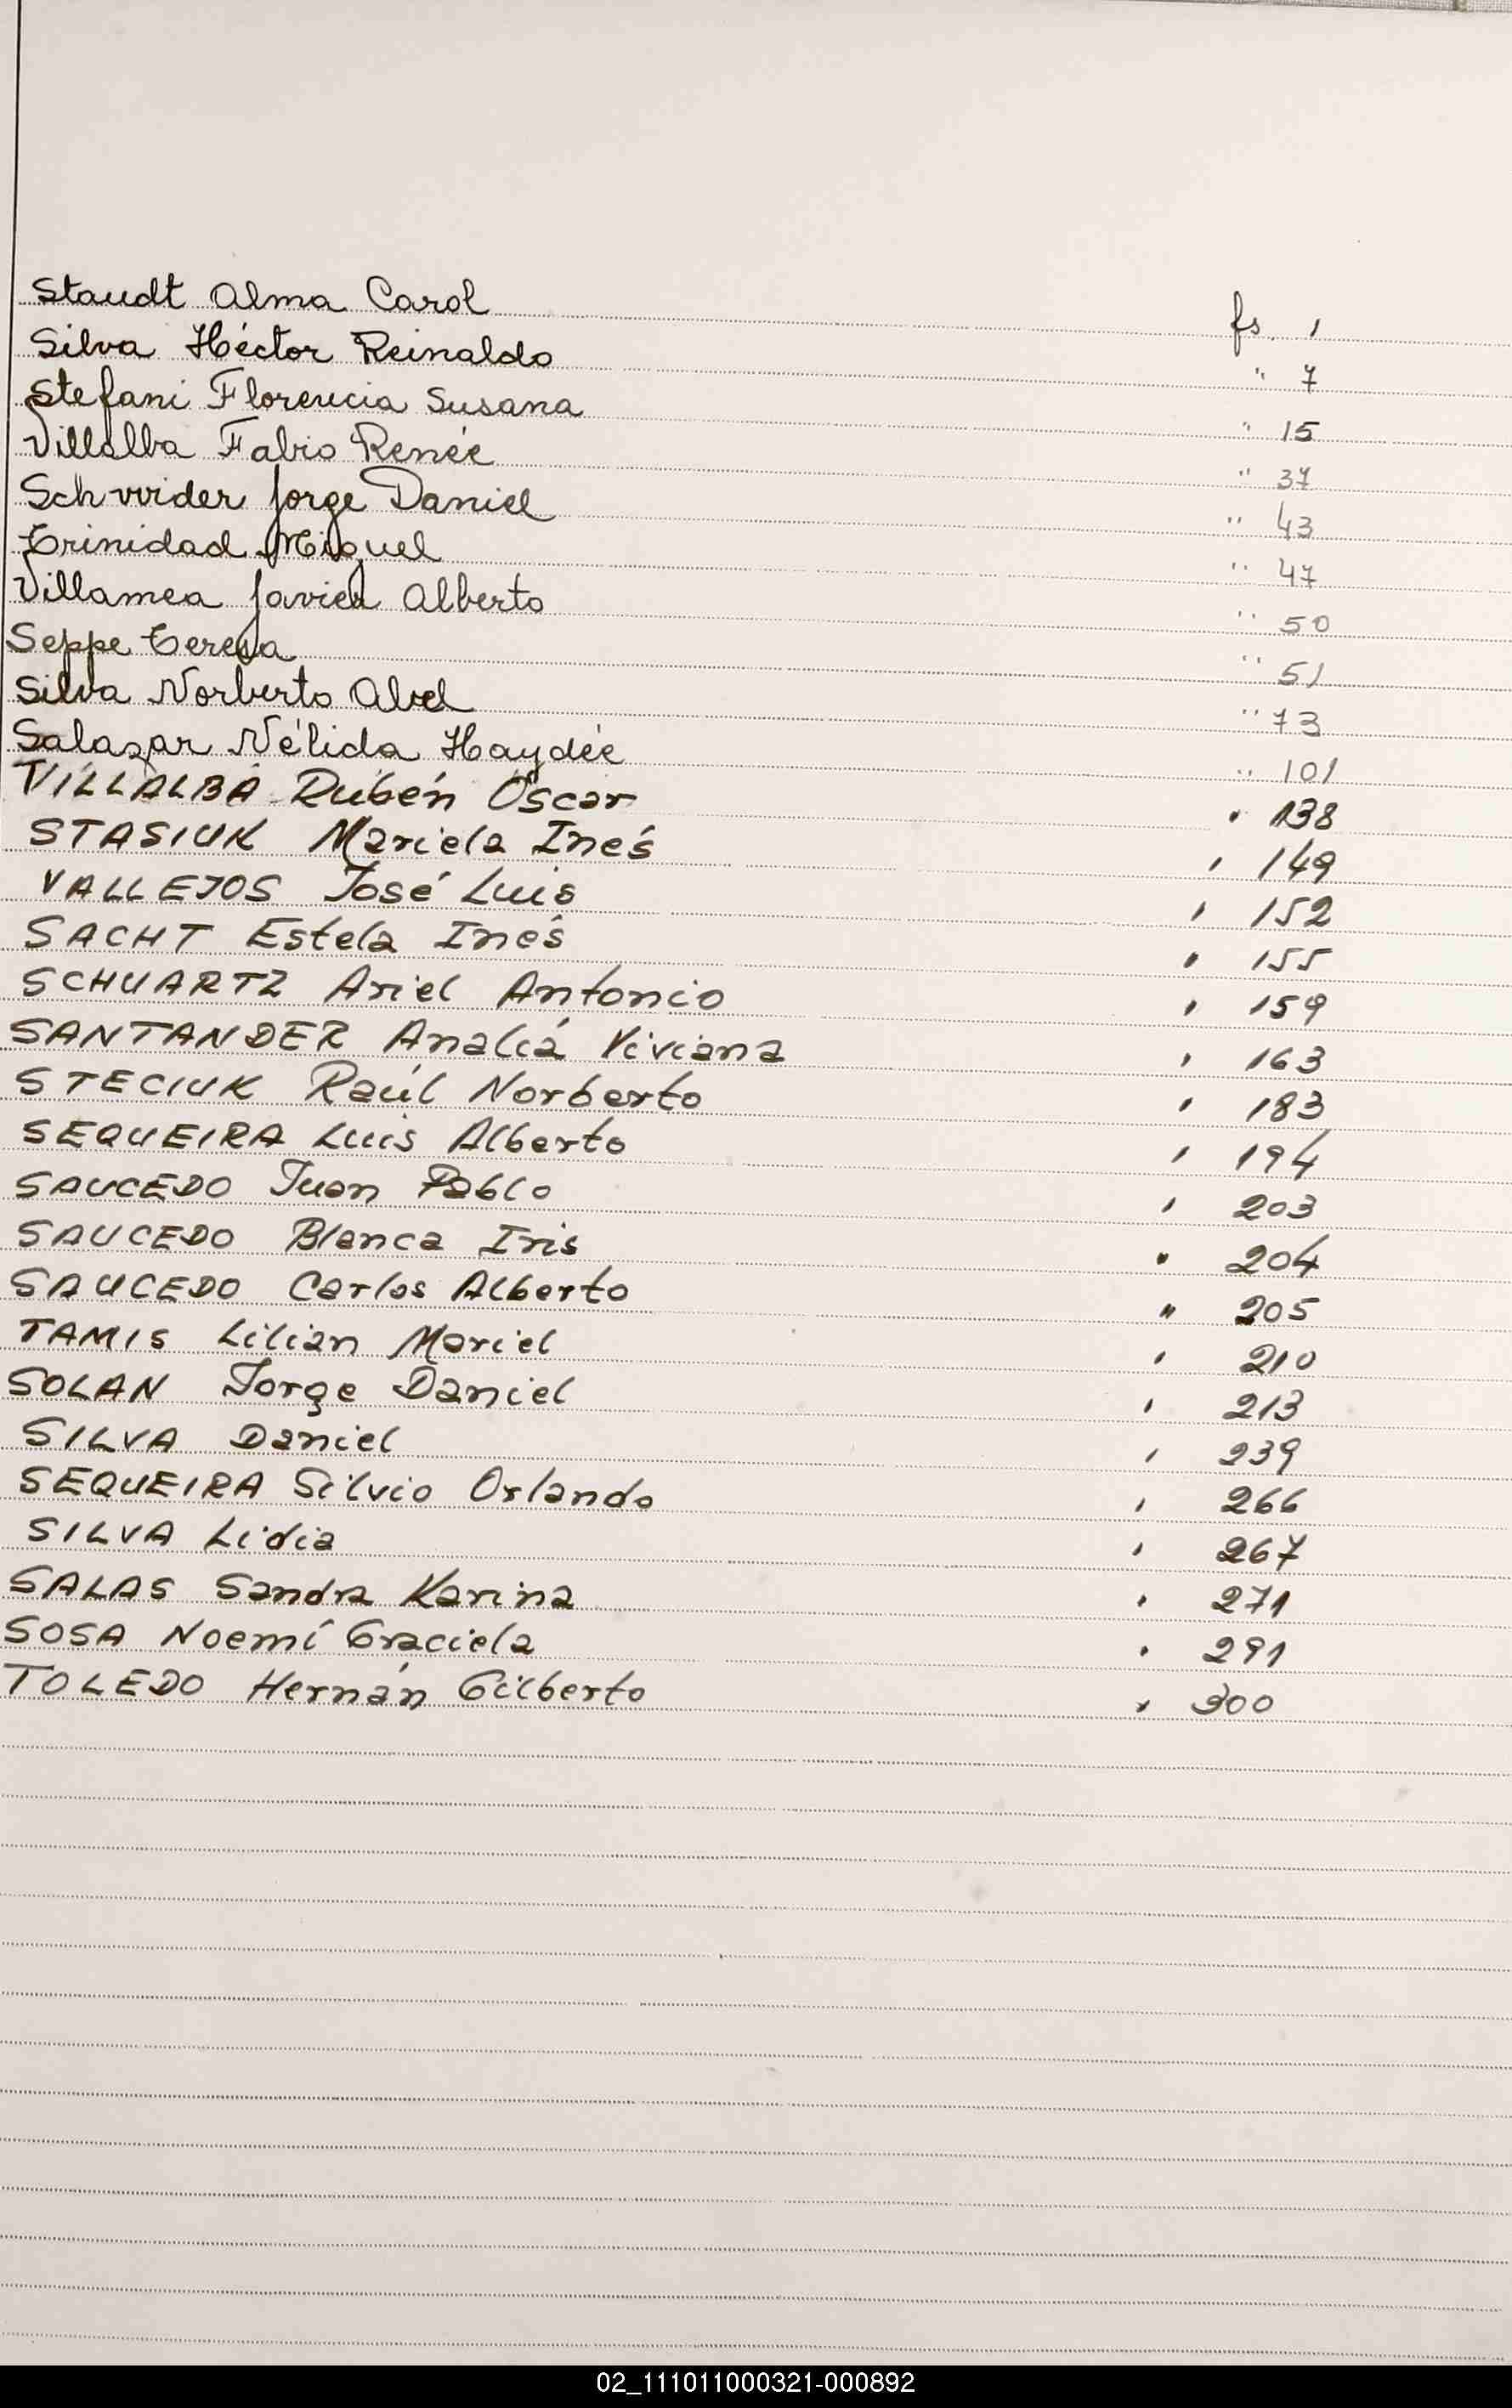 Staudt Alma Carol fs. 1
Silva Héctor Reinaldo " 7
Stefani Florencia Susana " 15
Villalba Fabio Renée " 37
Schvvider Jorge Daniel " 43
Trinidad Miguel " 47
Villamea Javier Alberto " 50
Seppe Teresa " 51
Silva Norberto Abel " 73
Salazar Nélida Haydée " 101
VILLALBA Rubén Oscar " 138
STASIUK Mariela Inés " 149
VALLEJOS José Luis " 152
SACHT Estela Inés " 155
SCHUARTZ Ariel Antonio " 159
SANTANDER Analiá Viviana " 163
STECIUK Raúl Norberto " 183
SEQUEIRA Luis Alberto " 194
SAUCEDO Juan Pablo " 203
SAUCEDO Blanca Iris " 204
SAUCEDO Carlos Alberto " 205
TAMIS Lilian Mariel " 210
SOLAN Jorge Daniel " 213
SILVA Daniel " 239
SEQUEIRA Silvio Orlando " 266
SILVA Lidia " 267
SALAS Sandra Karina " 271
SOSA Noemí Graciela " 291
TOLEDO Hernán Gilberto " 300
02_111011000321-000892